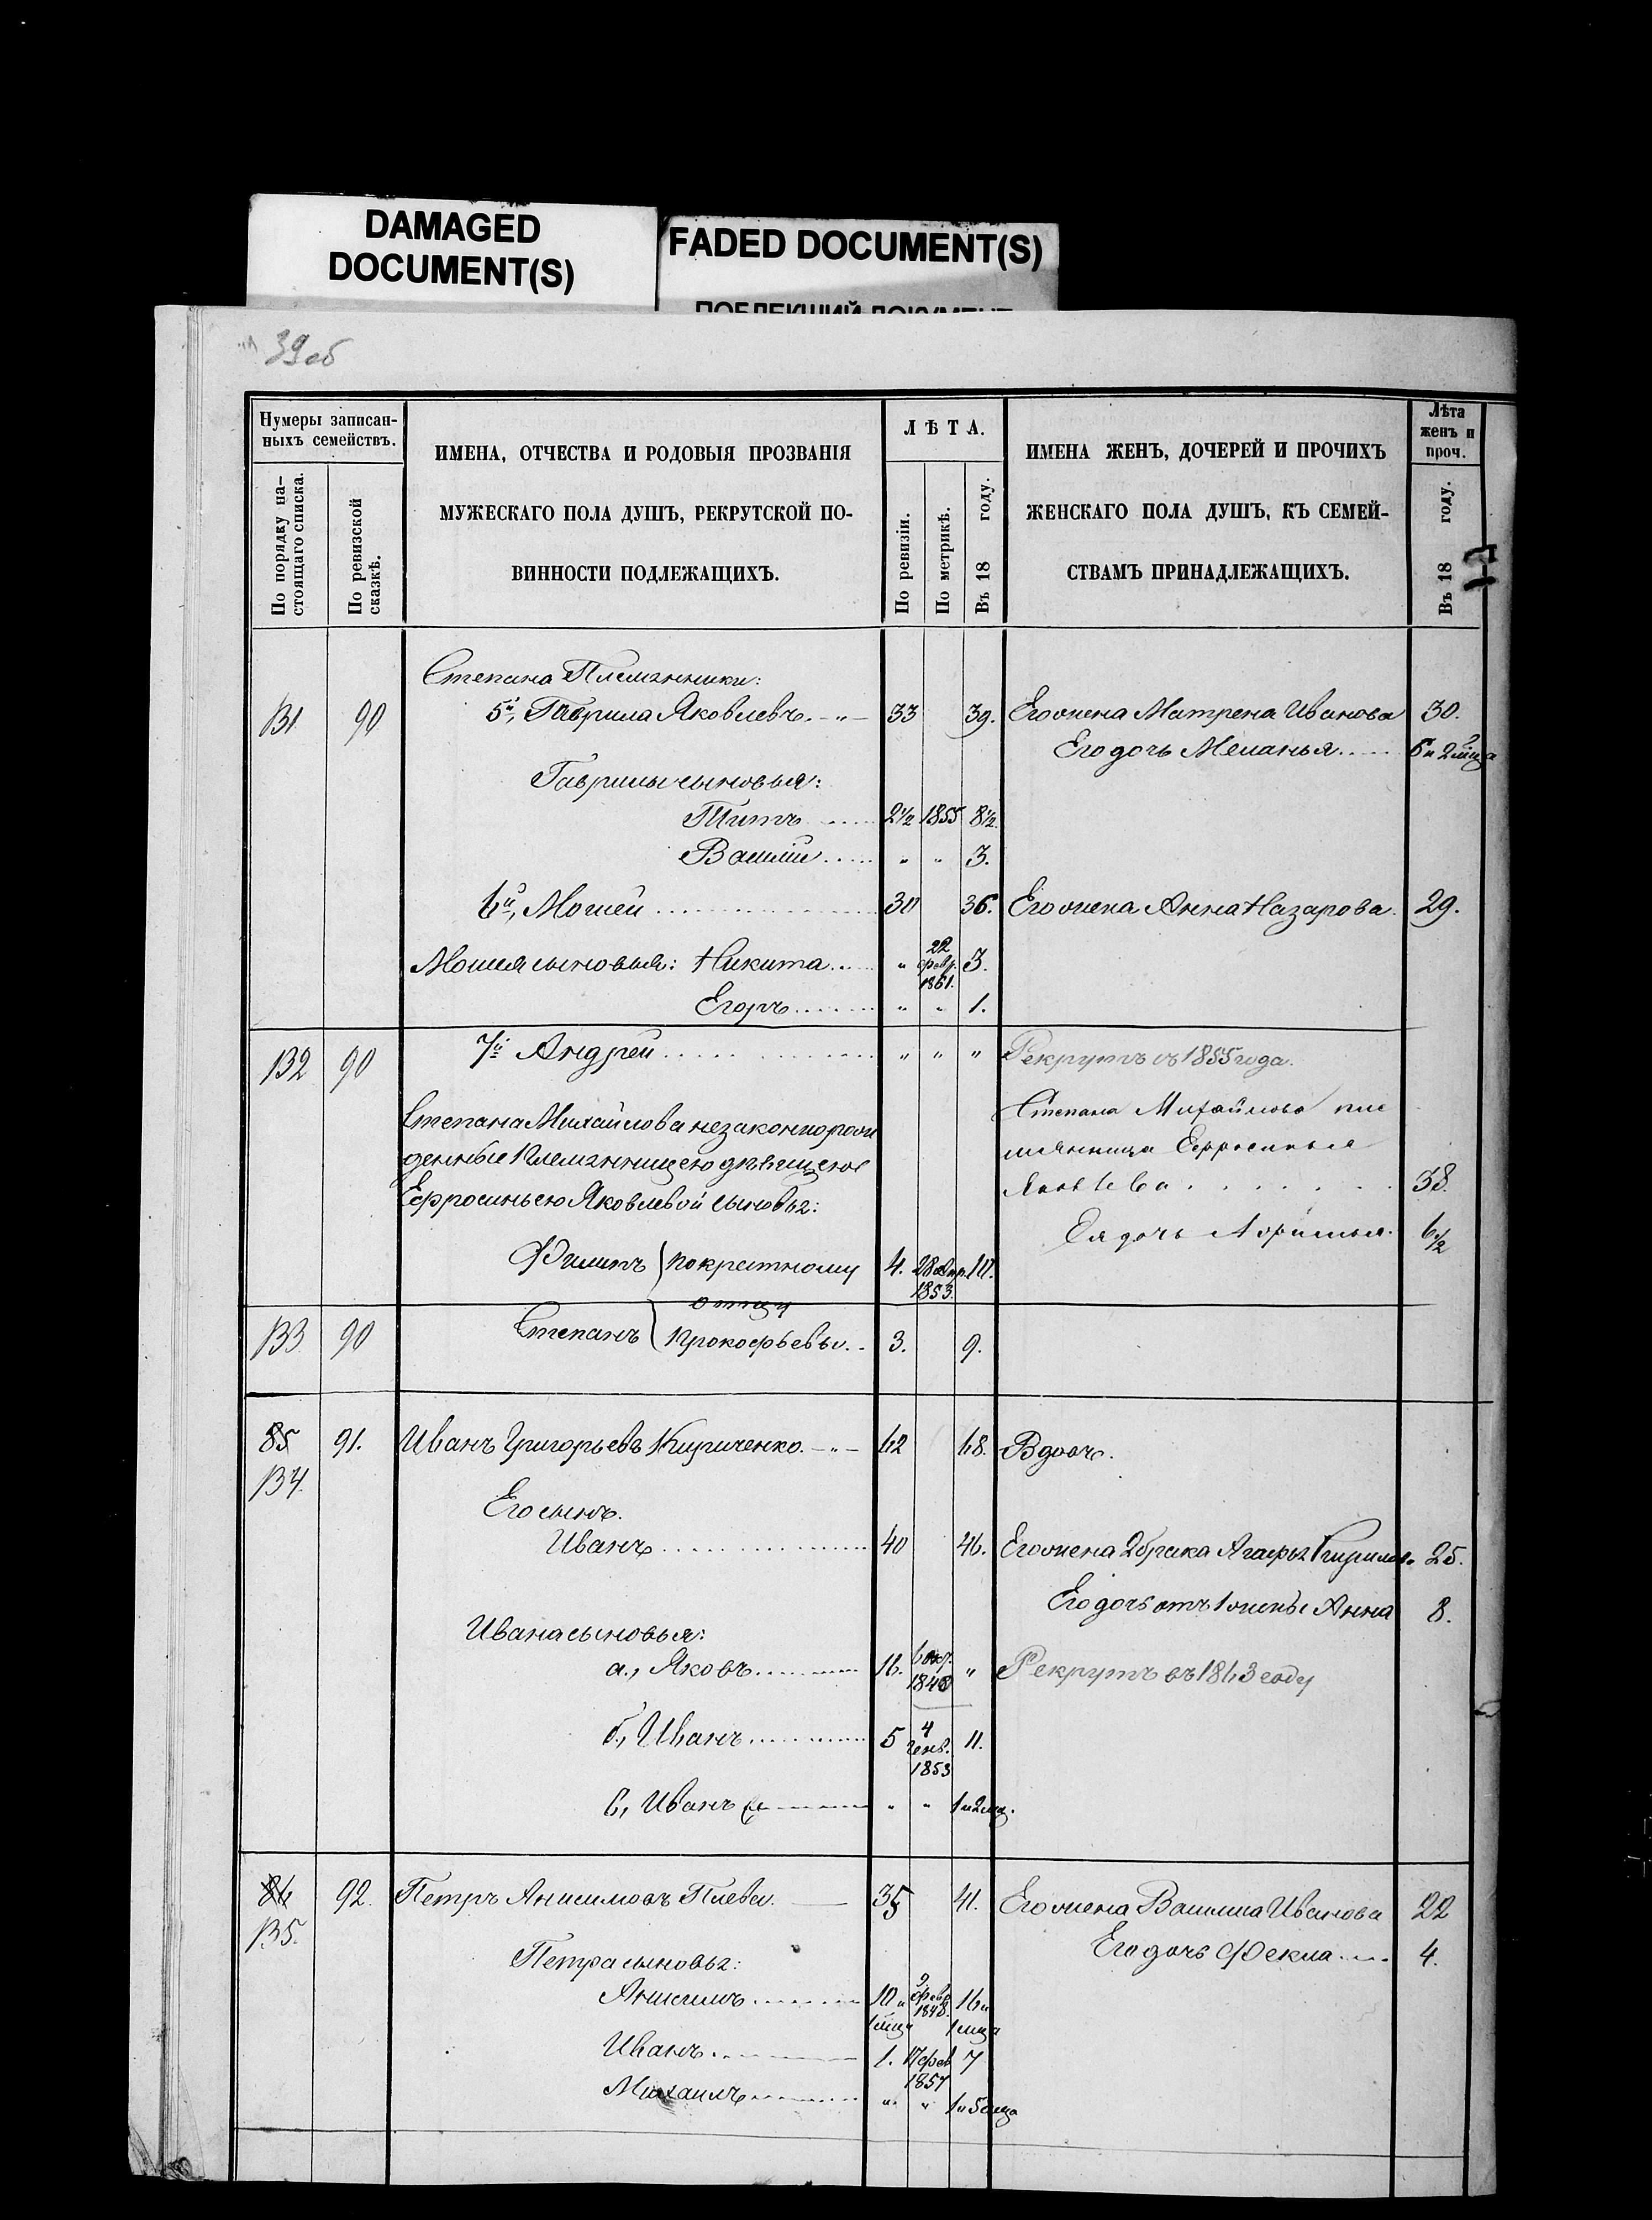 DAMAGED
DOCUMENT(S)
FADED DOCUMENT(S)
ПОБЛЕКШИЙ ДОКУМЕНТ
39 об
Нумеры записан-
ныхъ семействъ.
По порядку на-
стоящаго списка.
По ревизской
сказкѣ.
ИМЕНА, ОТЧЕСТВА И РОДОВЫЯ ПРОЗВАНІЯ
МУЖЕСКАГО ПОЛА ДУШЪ, РЕКРУТСКОЙ ПО-
ВИННОСТИ ПОДЛЕЖАЩИХЪ.
ЛѢТА.
По ревизіи.
По метрикѣ.
Въ 18 году.
ИМЕНА ЖЕНЪ, ДОЧЕРЕЙ И ПРОЧИХЪ
ЖЕНСКАГО ПОЛА ДУШЪ, КЪ СЕМЕЙ-
СТВАМЪ ПРИНАДЛЕЖАЩИХЪ.
Лѣта
женъ и
проч.
Въ 18 году.
Степана Племянники:
131 90 5й, Гаврила Яковлевъ 33 39. Его жена Матрена Иванова 30.
Его дочь Меланья 6 и 2 мца
Гаврилы сыновья:
Титъ 2½ 1855 8½.
Василій " " 3.
6й, Мосей 30 36. Его жена Анна Назарова 29.
Мосея сыновья: Никита " 22 февр. 1861. 3.
Егоръ " " 1.
132 90 7й Андрей " " " Рекрутъ съ 1855 года.
Степана Михайлова незаконнорож
денные Племянницею дѣвицею
Ефросиньею Яковлевой сыновья:
Степана Михайлова пле
мянница Ефросинья
Яковлева 38.
Ея дочь 6½
Филипъ по крестному 4. 28 Апр. 1853. 10.
отцу
133 90 Степанъ Прокофьевы 3. 9.
85 91. Иванъ Григорьевъ Кириченко 62 68. Вдовъ.
134.
Его сынъ.
Иванъ 40 46. Его жена 2 брака Агафья Кирилов. 25.
Его дочь отъ 1 жены Анна 8.
Ивана сыновья:
а., Яковъ 16. 1840 " Рекрутъ въ 1863 году
б., Иванъ 5 4 генв. 1853 11.
в, Иванъ " " 1 и 2 мц.
86 92. Петръ Анисимовъ 35 41. Его жена Василиса Иванова 22
135.
Его дочь Фекла 4.
Петра сыновья:
Анисимъ 10 и 1 мца 9 февр. 1848. 16 и 1 мца
Иванъ 1. 17 фев 1857 7
Михаилъ " " 1 и 5 мца